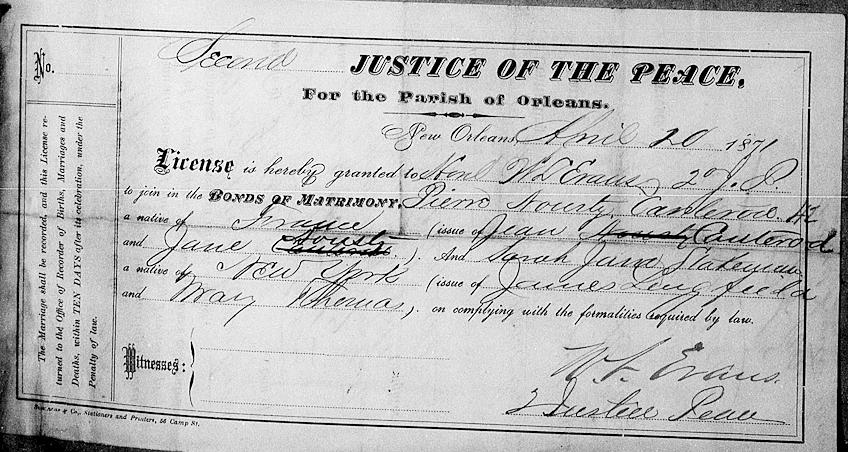 No.
Second JUSTICE OF THE PEACE,
For the Parish of Orleans.
New Orleans, April 20 1871
License is hereby granted to Hon W L Evans, 2d J. P.
to join in the BONDS OF MATRIMONY, Pierre Housty Canterod
a native of France (issue of Jean Canterod
and Jane Housty ). And Sarah Jane Slateman
a native of New York (issue of James Lingfield
and Mary Thomas ). on complying with the formalities required by law.
Witnesses:
W. L. Evans.
2 Justice Peace
The Marriage shall be recorded, and this License re-
turned to the Office of Recorder of Births, Marriages and
Deaths, within TEN DAYS after its celebration, under the
Penalty of law.
& Co., Stationers and Printers, 56 Camp St.